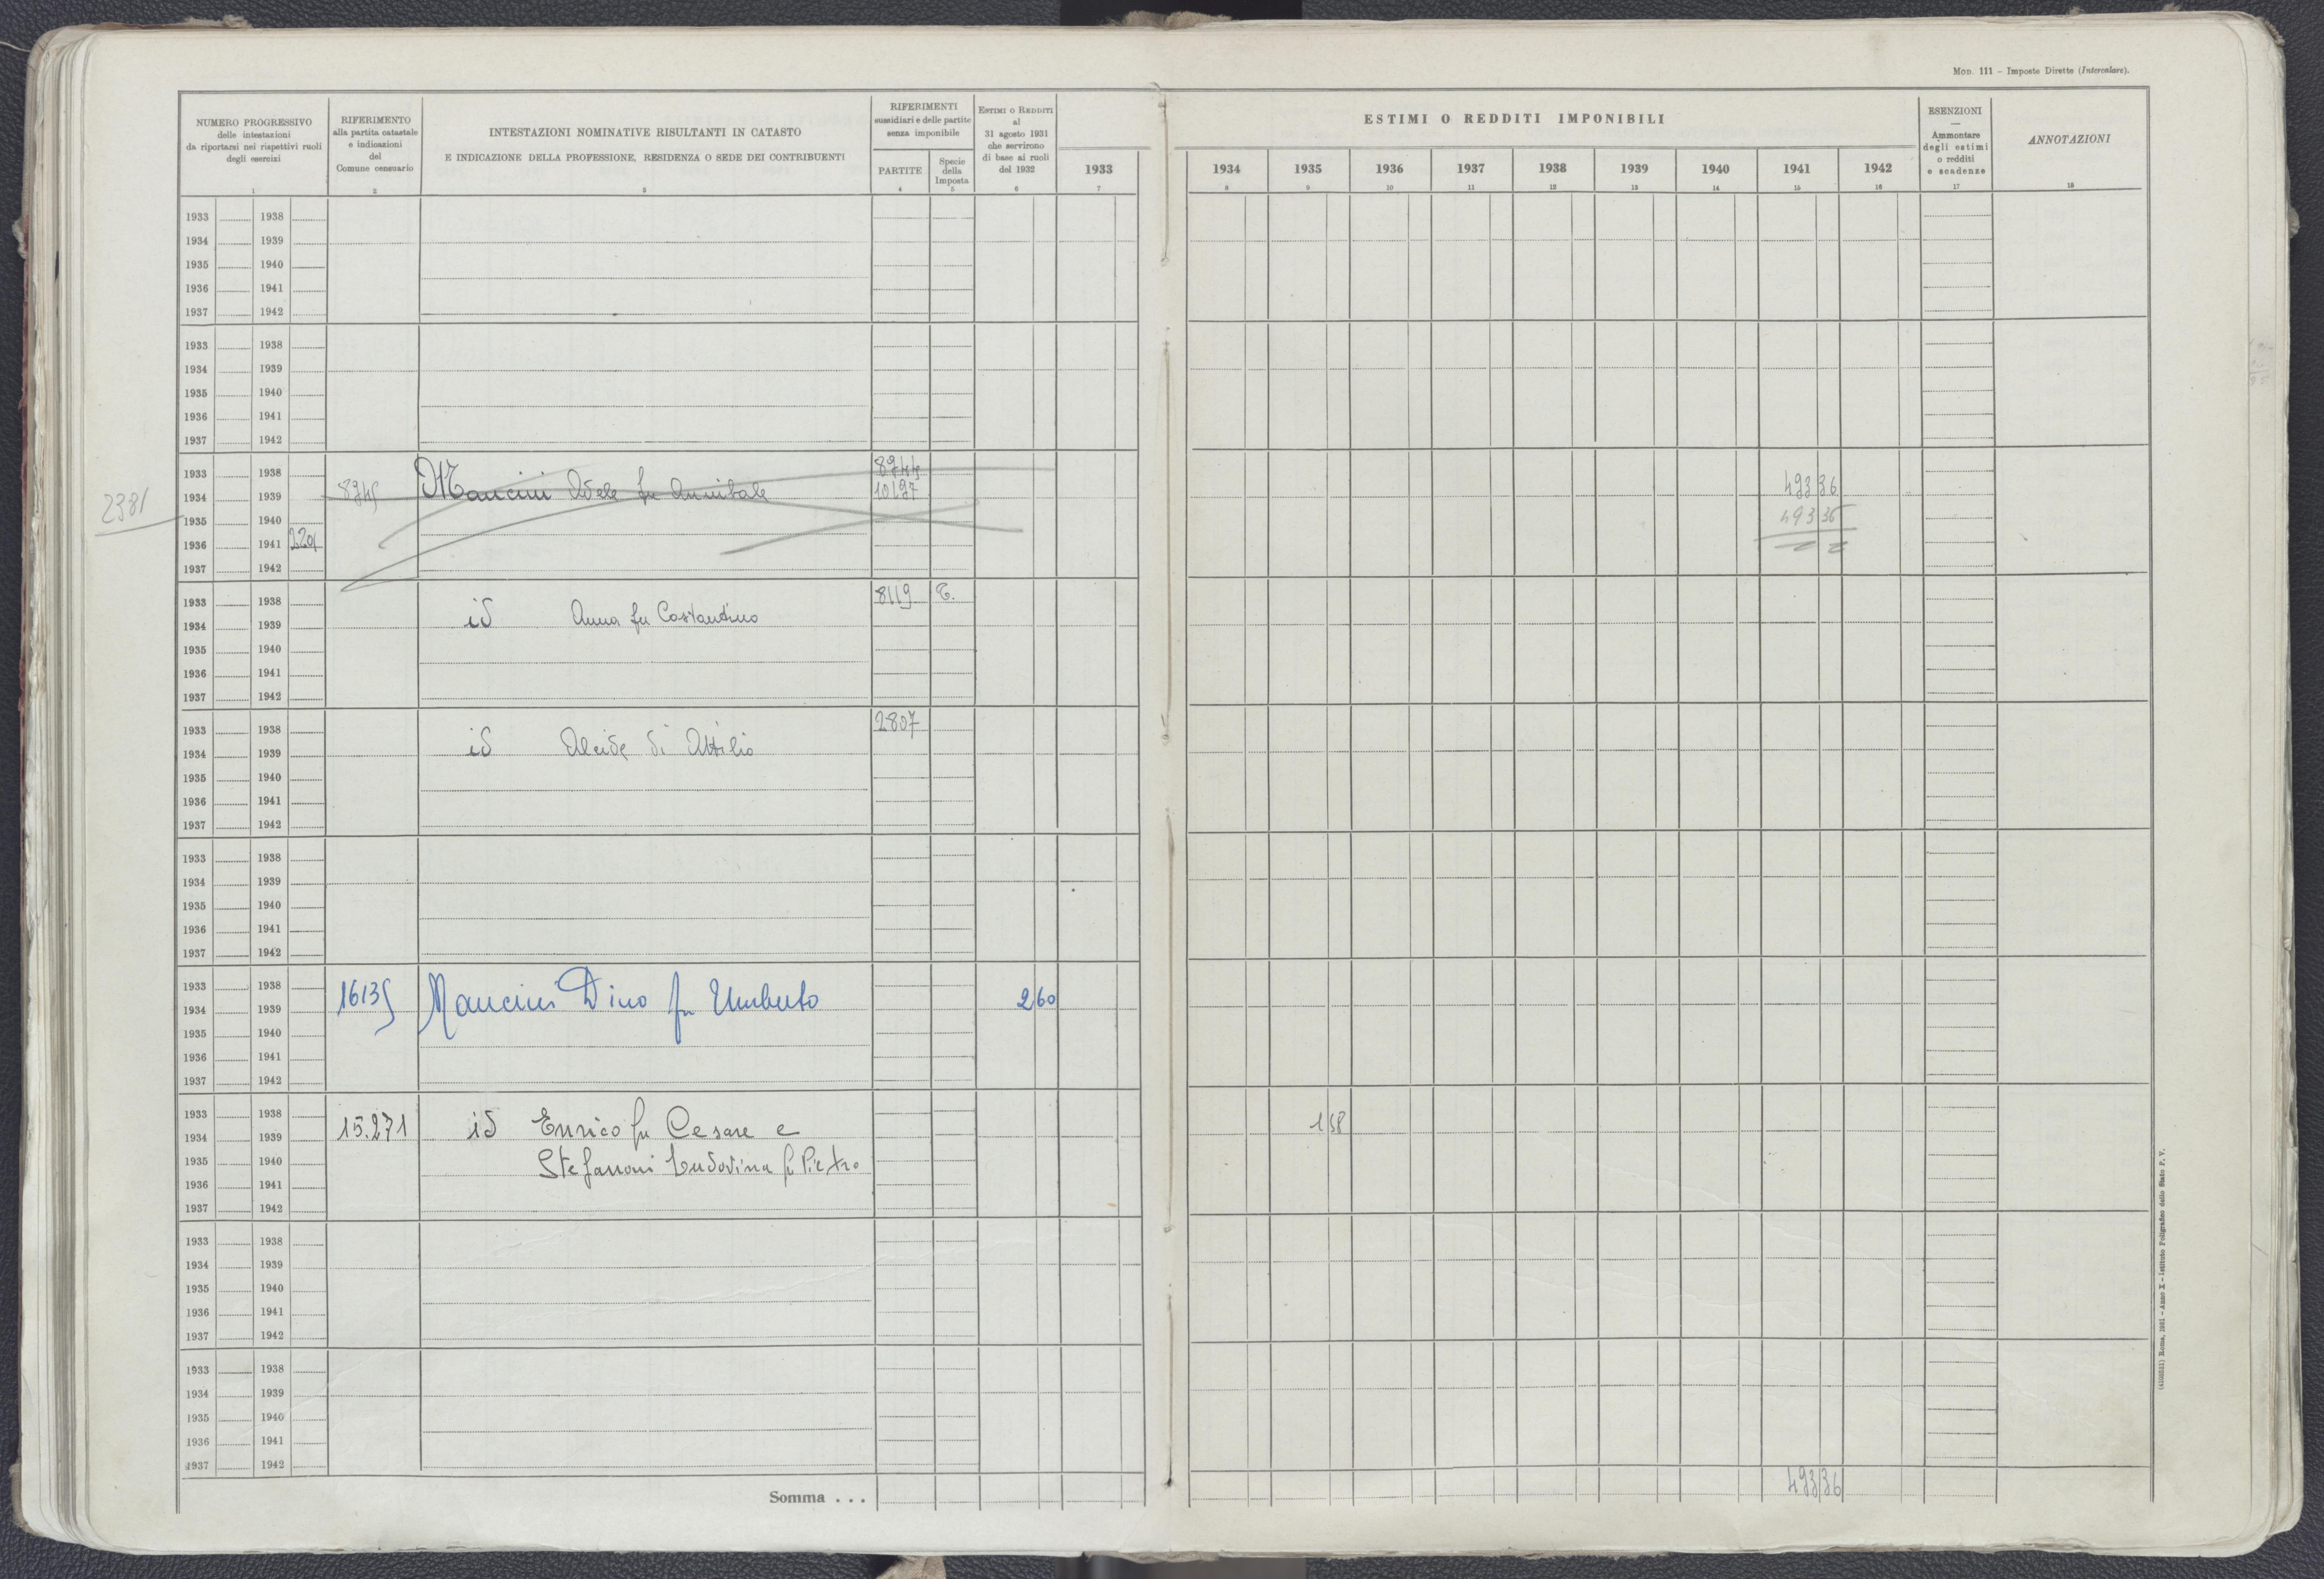 Mod. 111 – Imposte Dirette (Intercalare).
NUMERO PROGRESSIVO
delle intestazioni
da riportarsi nei rispettivi ruoli
degli esercizi
1
RIFERIMENTO
alla partita catastale
e indicazioni
del
Comune censuario
2
INTESTAZIONI NOMINATIVE RISULTANTI IN CATASTO
E INDICAZIONE DELLA PROFESSIONE, RESIDENZA O SEDE DEI CONTRIBUENTI
3
RIFERIMENTI
sussidiari e delle partite
senza imponibile
PARTITE
4
Specie
della
Imposta
5
Estimi o Redditi
al
31 agosto 1931
che servirono
di base ai ruoli
del 1932
6
1933
7
ESTIMI O REDDITI IMPONIBILI
1934 1935 1936 1937 1938 1939 1940 1941 1942
8 9 10 11 12 13 14 15 16
ESENZIONI
—
Ammontare
degli estimi
o redditi
e scadenze
17
ANNOTAZIONI
18
1933 1938
1934 1939
1935 1940
1936 1941
1937 1942
1933 1938
1934 1939
1935 1940
1936 1941
1937 1942
1933 1938 8744
1934 1939 8745 Mancini Adele fu Annibale 10197 493 36
2381 1935 1940 493 36
1936 1941 2201
1937 1942
1933 1938 8119 T.
1934 1939 id Anna fu Costantino
1935 1940
1936 1941
1937 1942
1933 1938 2807
1934 1939 id Alcide di Attilio
1935 1940
1936 1941
1937 1942
1933 1938
1934 1939
1935 1940
1936 1941
1937 1942
1933 1938
1934 1939 16135 Mancini Dino fu Umberto 2 60
1935 1940
1936 1941
1937 1942
1933 1938
1934 1939 15.271 id Enrico fu Cesare e 1 58
1935 1940 Stefanoni Ludovina fu Pietro
1936 1941
1937 1942
1933 1938
1934 1939
1935 1940
1936 1941
1937 1942
1933 1938
1934 1939
1935 1940
1936 1941
1937 1942
Somma . . . 493 36
(4100531) Roma, 1931 – Anno X – Istituto Poligrafico dello Stato P. V.